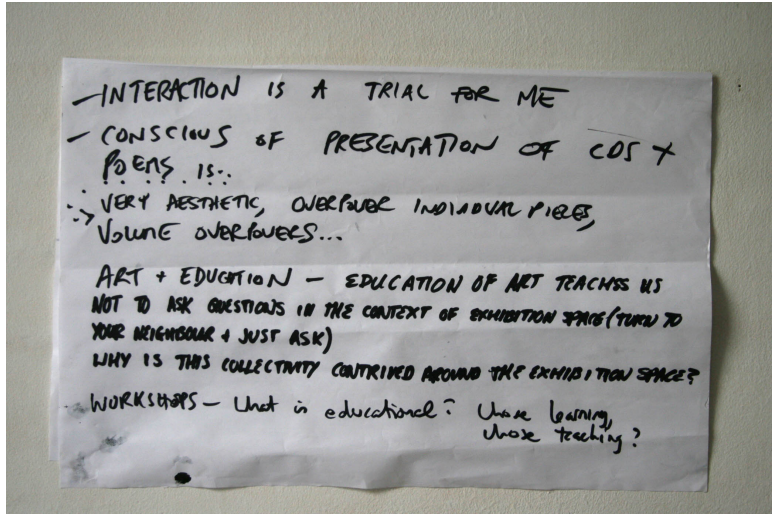 - INTERACTION IS A TRIAL FOR ME
- CONSCIOUS OF PRESENTATION OF CDS +
POEMS IS..
VERY AESTHETIC, OVERPOWER INDIVIDUAL PIECES,
VOLUME OVERPOWERS...
ART + EDUCATION - EDUCATION OF ART TEACHES US
NOT TO ASK QUESTIONS IN THE CONTEXT OF EXHIBITION SPACE (TURN TO
YOUR NEIGHBOUR + JUST ASK)
WHY IS THIS COLLECTIVITY CONTRIVED AROUND THE EXHIBITION SPACE?
WORKSHOPS - What is educational? whose learning,
whose teaching?